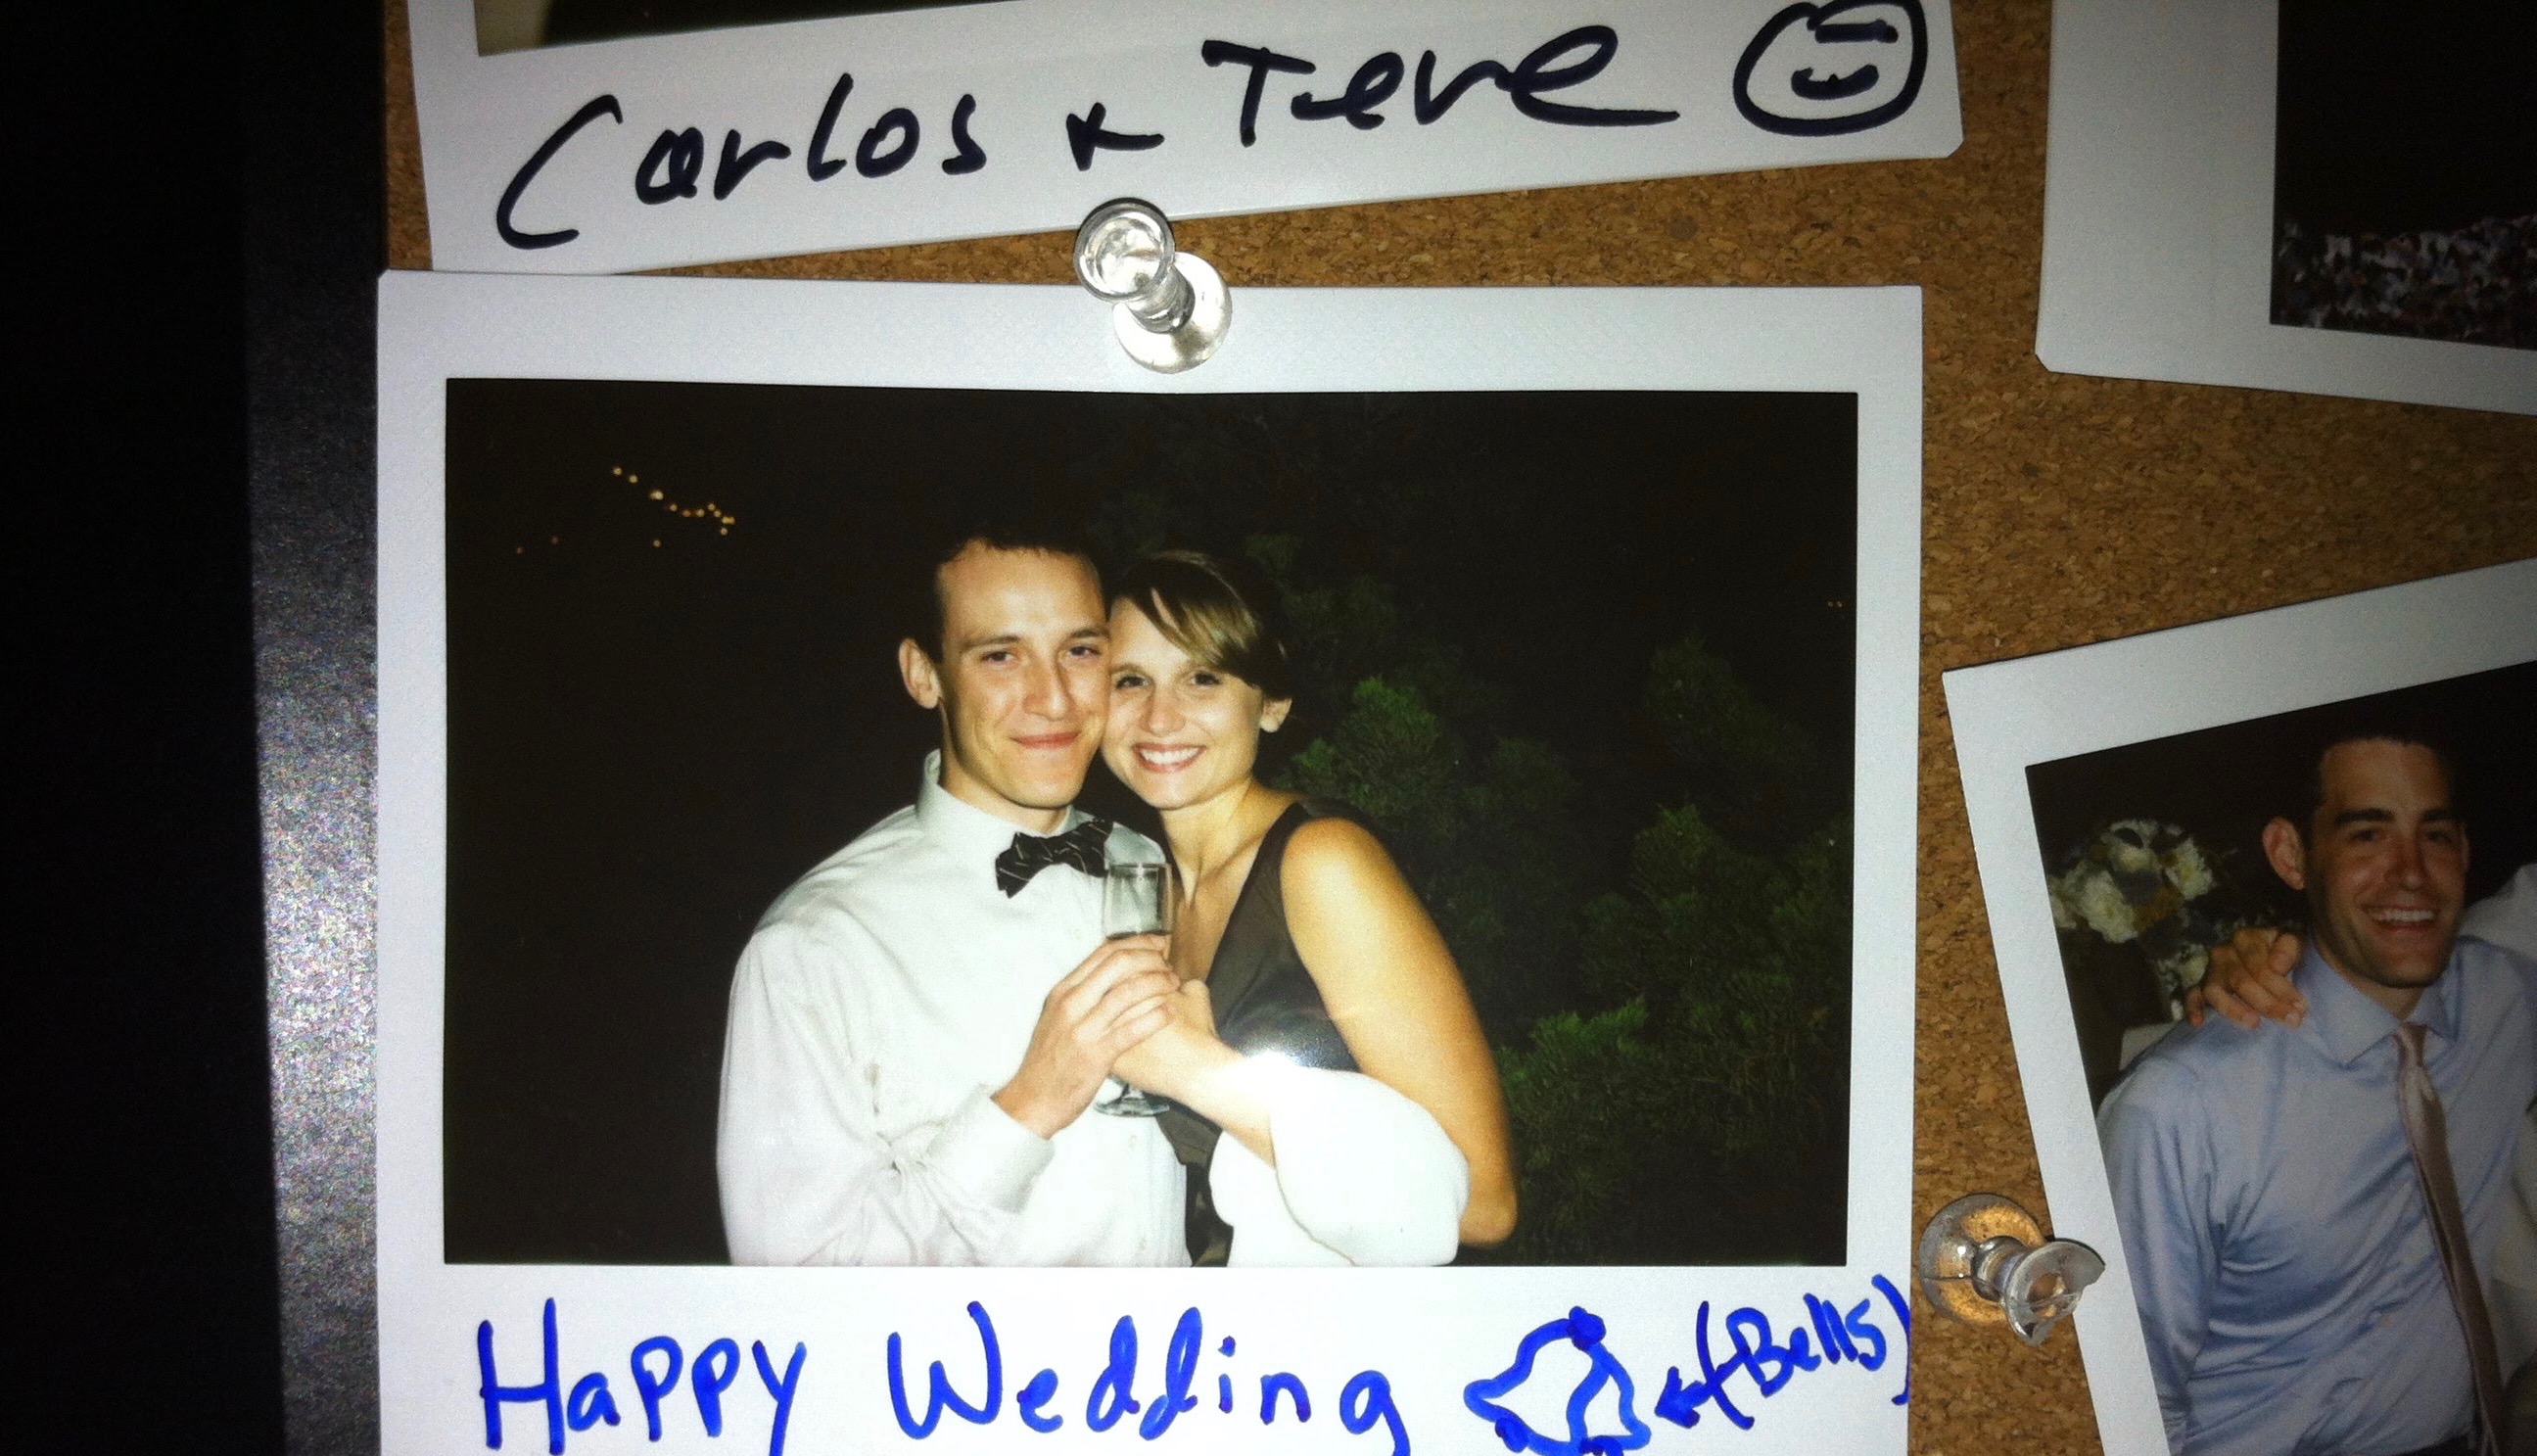 Carlos + Tere
Happy Wedding ←(Bells)